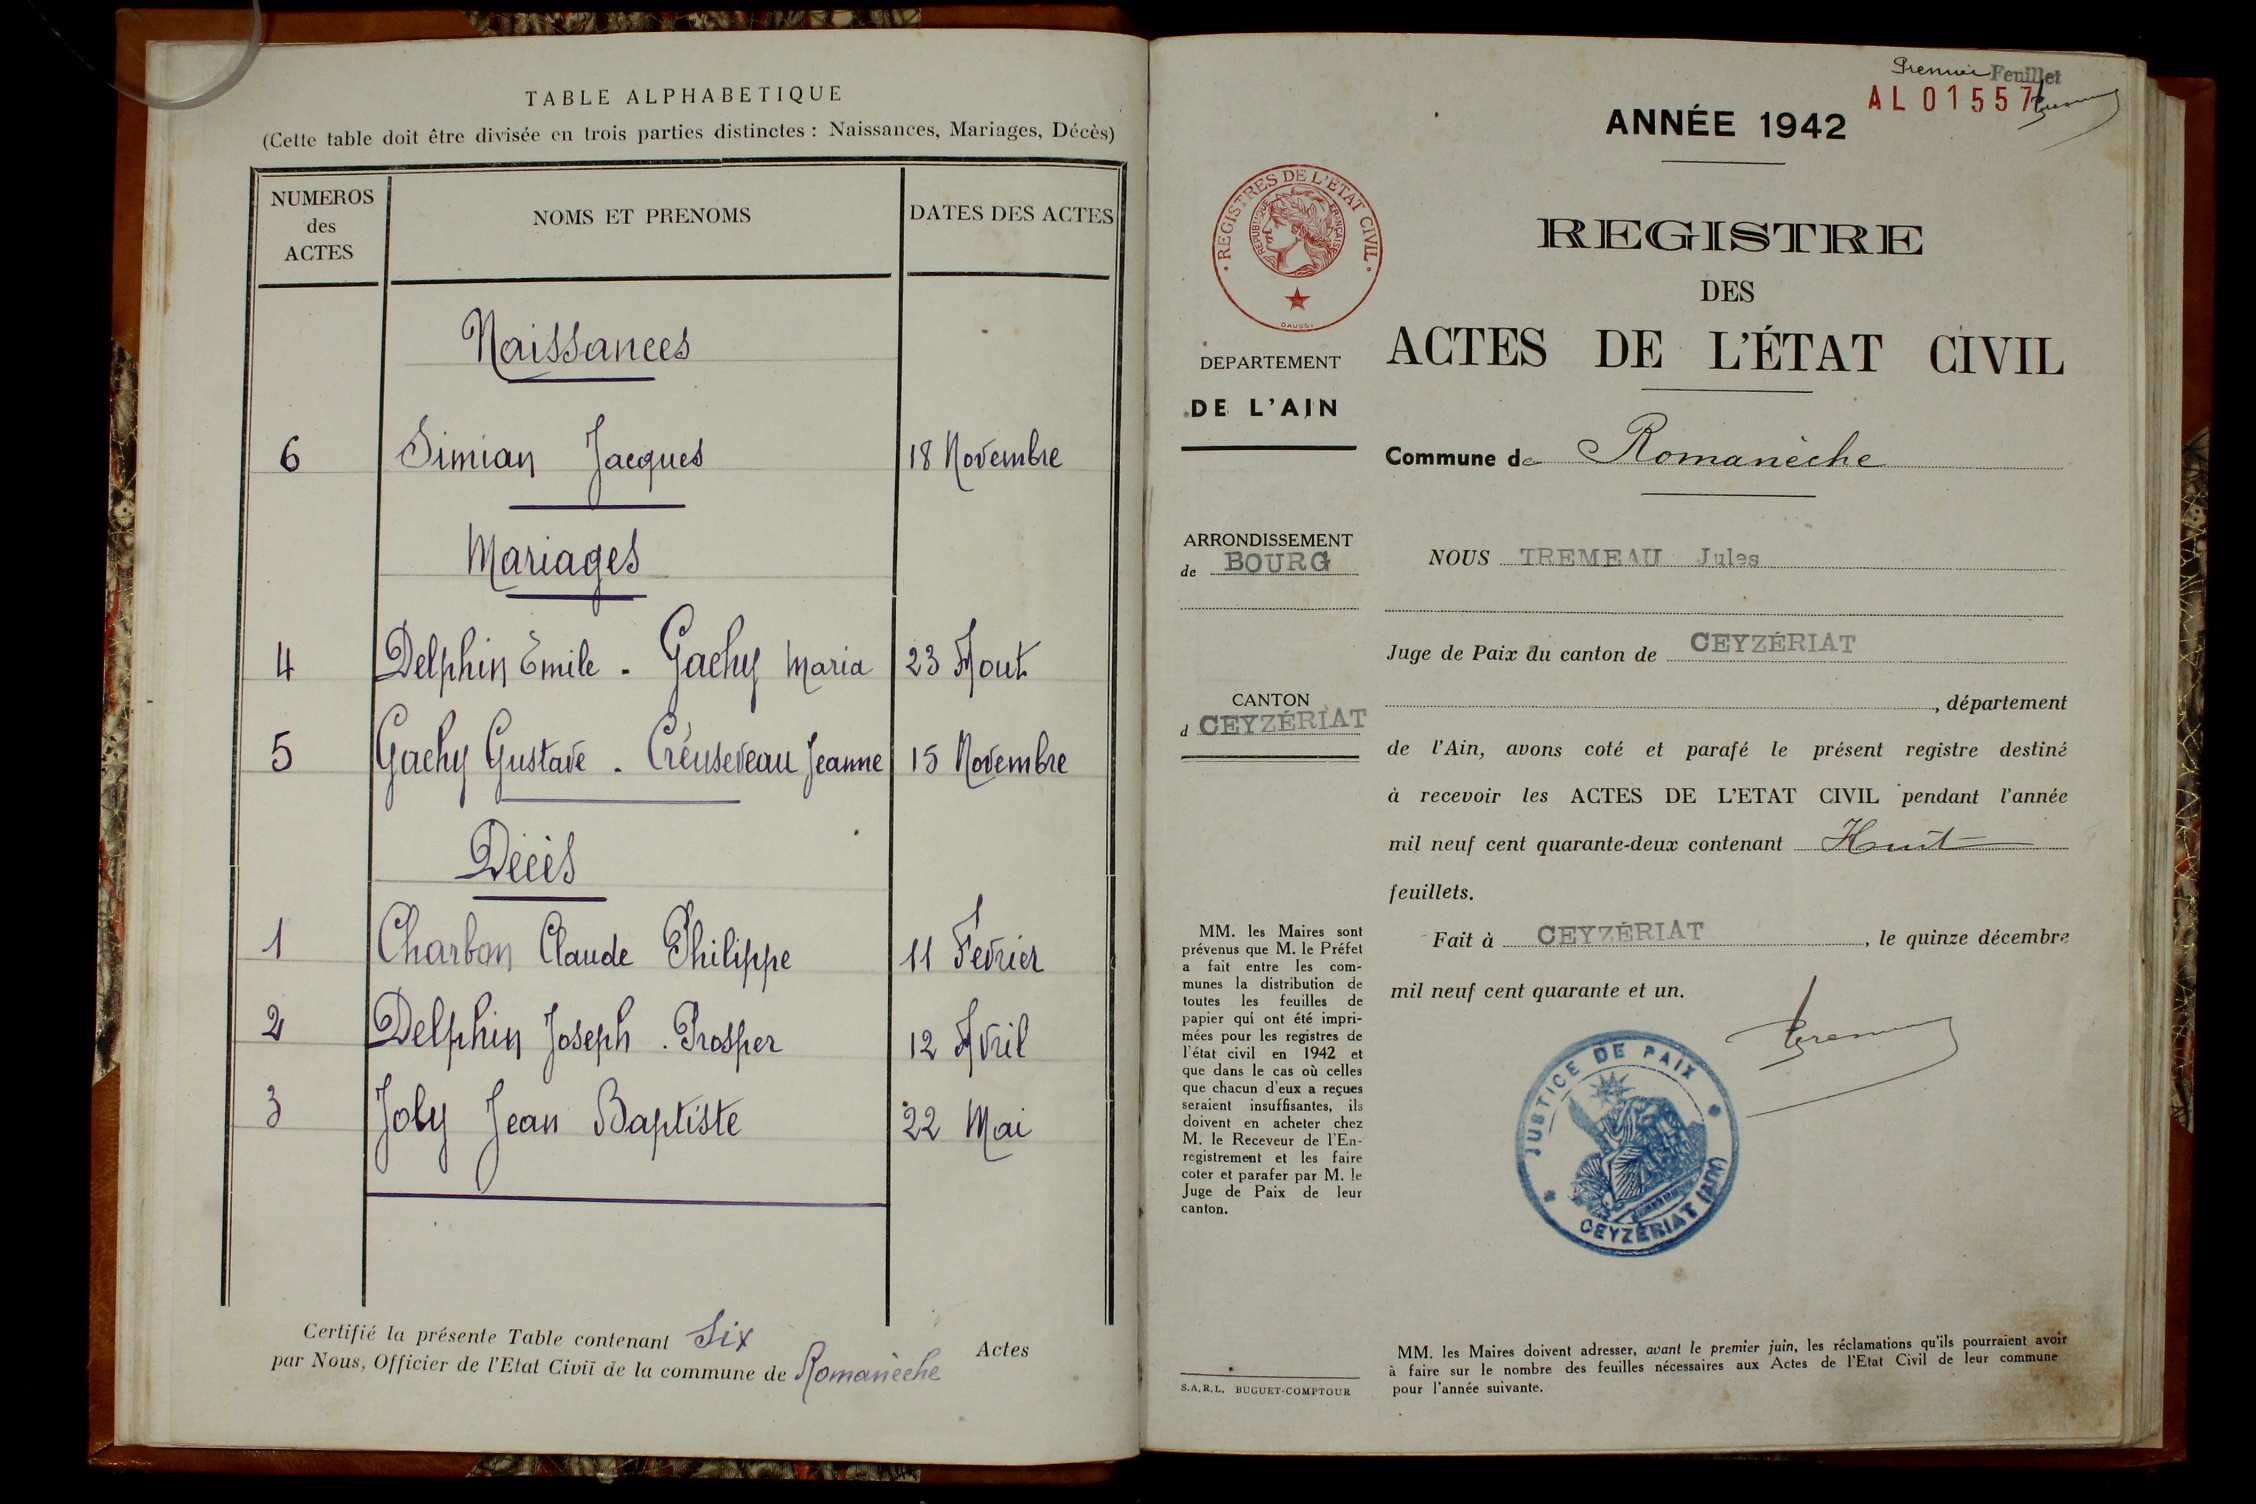 TABLE ALPHABETIQUE
(Cette table doit être divisée en trois parties distinctes : Naissances, Mariages, Décès)
NUMEROS
des
ACTES
NOMS ET PRENOMS
DATES DES ACTES
Naissances
6 Simian Jacques 18 Novembre
Mariages
4 Delphin Emile - Gachy Maria 23 Aout
5 Gachy Gustave - Créuseveau Jeanne 15 Novembre
Décès
1 Charbon Claude Philippe 11 Février
2 Delphin Joseph - Prosper 12 Avril
3 Joly Jean Baptiste 22 Mai
Certifié la présente Table contenant Six Actes
par Nous, Officier de l'Etat Civil de la commune de Romanèche
Premier Feuillet
AL 01557
ANNÉE 1942
REGISTRES DE L'ÉTAT CIVIL
RÉPUBLIQUE FRANÇAISE
REGISTRE
DES
ACTES DE L'ÉTAT CIVIL
DEPARTEMENT
DE L'AIN
Commune de Romanèche
ARRONDISSEMENT
de BOURG
NOUS TREMEAU Jules
Juge de Paix du canton de CEYZÉRIAT
CANTON
d CEYZÉRIAT
, département
de l'Ain, avons coté et parafé le présent registre destiné
à recevoir les ACTES DE L'ETAT CIVIL pendant l'année
mil neuf cent quarante-deux contenant Huit
feuillets.
Fait à CEYZÉRIAT, le quinze décembre
mil neuf cent quarante et un.
MM. les Maires sont
prévenus que M. le Préfet
a fait entre les com-
munes la distribution de
toutes les feuilles de
papier qui ont été impri-
mées pour les registres de
l'état civil en 1942 et
que dans le cas où celles
que chacun d'eux a reçues
seraient insuffisantes, ils
doivent en acheter chez
M. le Receveur de l'En-
registrement et les faire
coter et parafer par M. le
Juge de Paix de leur
canton.
JUSTICE DE PAIX
CEYZÉRIAT (AIN)
MM. les Maires doivent adresser, avant le premier juin, les réclamations qu'ils pourraient avoir
à faire sur le nombre des feuilles nécessaires aux Actes de l'Etat Civil de leur commune
pour l'année suivante.
S.A.R.L. BUGUET-COMPTOUR